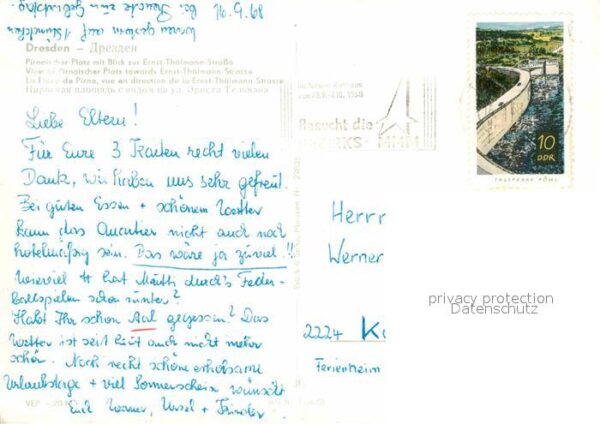 16.9.68
waren gestern auf 1 Stündchen
bei zum Geburtstag.
Dresden – Дрезден
Pirnaischer Platz mit Blick zur Ernst-Thälmann-Straße
View of Pirnaischer Platz towards Ernst-Thälmann-Strasse
La Place de Pirna, vue en direction de la Ernst-Thälmann-Strasse
Пирнаишая площадь с видом на ул. Эрнста Тельмана
Liebe Eltern!
Für Eure 3 Karten recht vielen
Dank, wir haben uns sehr gefreut.
Bei gutem Essen + schönem Wetter
kann das Quartier nicht auch noch
hotelmäßig sein. Das wäre ja zuviel!!
Wieviel # hat Mutti durch's Feder-
ballspielen schon runter?
Habt Ihr schon Aal gegessen? Das
Wetter ist seit heut auch nicht mehr
schön. Noch recht schöne erholsame
Urlaubstage + viel Sonnenschein wünscht
Euch Werner, Ursel +
VEB
Besucht die
BEZIRKS- MMM
10
DDR
TALSPERRE PÖHL
Herrn
Werner
2224 K
Ferienheim
privacy protection
Datenschutz